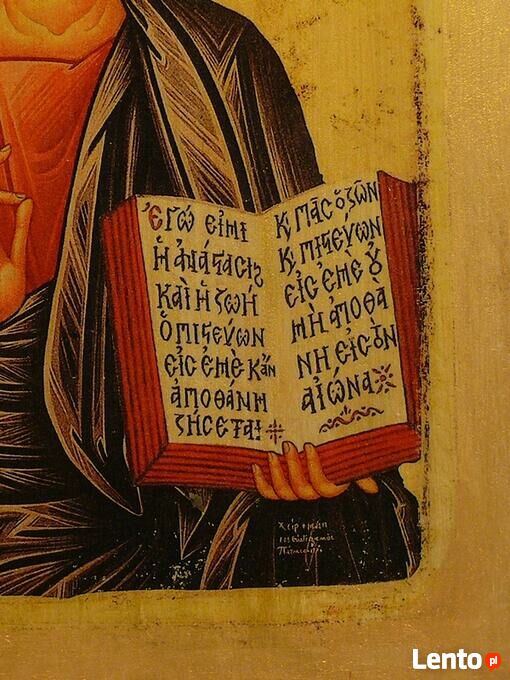 Ἐγώ εἰμι
ἡ ἀνάϛασις
καὶ ἡ ζωή
ὁ πιϛεύων
εἰς ἐμὲ κἂν
ἀποθάνῃ
ζήσεται
Κ πᾶς ὁ ζῶν
Κ πιϛεύων
εἰς ἐμὲ οὐ
μὴ ἀποθά
νῃ εἰς τὸν
αἰῶνα
Χείρ
Lento pl